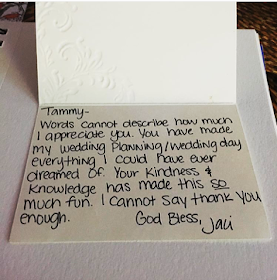 Tammy-
Words cannot describe how much
I appreciate you. You have made
my wedding planning/wedding day
everything I could have ever
dreamed of. Your kindness &
knowledge has made this so
much fun. I cannot say thank you
enough.
God Bless, Jaci